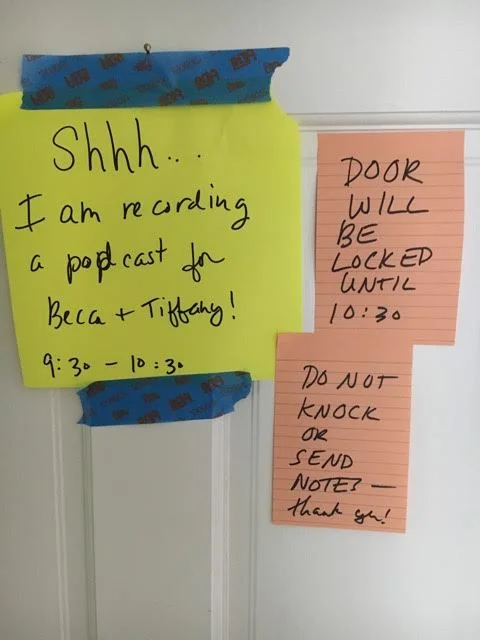 Shhh...
I am recording
a podcast for
Beca + Tiffany!
9:30 - 10:30
DOOR
WILL
BE
LOCKED
UNTIL
10:30
DO NOT
KNOCK
OR
SEND
NOTES —
thank you!